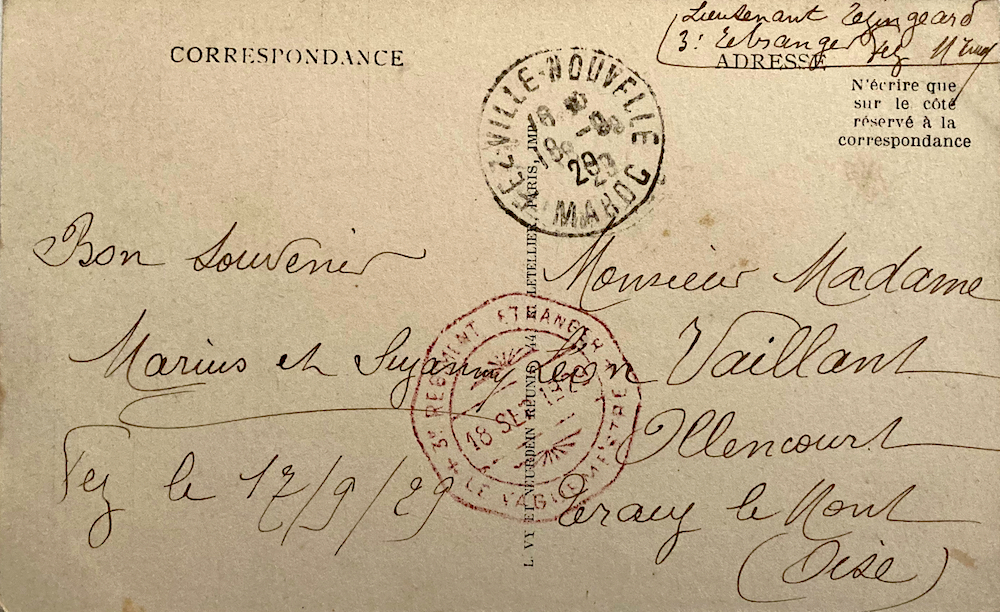 Lieutenant
3e Etranger Fez
CORRESPONDANCE
ADRESSE
N'écrire que
sur le côté
réservé à la
correspondance
FEZ-VILLE-NOUVELLE
18
29
MAROC
Bon Souvenir
Marius et Suzanne
Fez le 17/9/29
Monsieur Madame
Léon Vaillant
Ollencourt
Tracy le Mont
(Oise)
3e REGIMENT ETRANGER
18 SEPT 1929
LE VAGUEMESTRE
L. VY ET NEURDEIN REUNIS, 44 R. LETELLIER, PARIS, IMP.